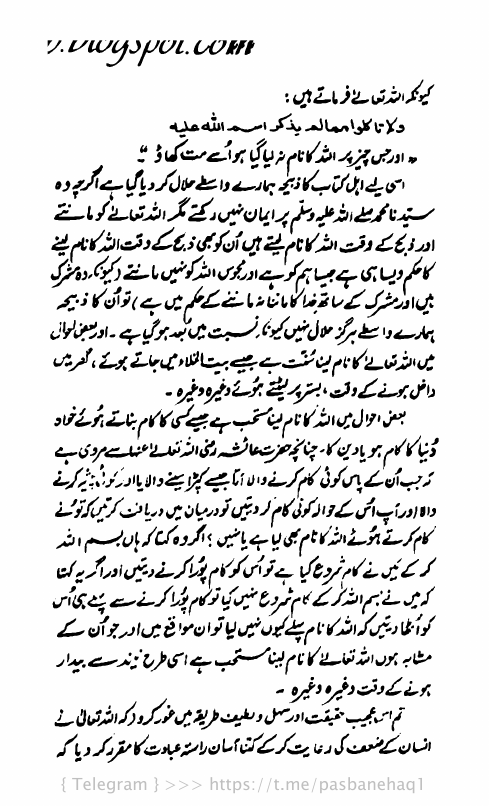 کیونکہ اللہ تعالے فرماتے ہیں :
ولا تاکلوا مما لم یذکر اسم اللہ علیہ
" اور جس چیز پر اللہ کا نام نہ لیا گیا ہو اُسے مت کھاؤ "
اسی لیے اہل کتاب کا ذبیحہ ہمارے واسطے حلال کر دیا گیا ہے اگرچہ وہ
سیدنا محمد صلے اللہ علیہ وسلم پر ایمان نہیں رکھتے مگر اللہ تعالے کو مانتے
اور ذبح کے وقت اللہ کا نام لیتے ہیں اُن کو بھی ذبح کے وقت اللہ کا نام لینے
کا حکم ویسا ہی ہے جیسا ہم کو ہے اور مجوس اللہ کو نہیں مانتے (کیونکہ وہ مشرک
ہیں اور مشرک کے ساتھ خدا کا ماننا نہ ماننے کے حکم میں ہے) تو اُن کا ذبیحہ
ہمارے واسطے ہرگز حلال نہیں کیونکہ نسبت میں بُعد ہو گیا ہے ۔ اور بعض احوال
میں اللہ تعالے کا نام لینا سُنّت ہے جیسے بیت الخلاء میں جاتے ہوئے ، گھر میں
داخل ہونے کے وقت ، بستر پر لیٹتے ہوئے وغیرہ وغیرہ ۔
بعض احوال میں اللہ کا نام لینا مستحب ہے جیسے کسی کا کام بناتے ہوئے خواہ
دُنیا کا کام ہو یا دین کا ۔ چنانچہ حضرت عائشہ رضی اللہ تعالے عنہا سے مروی ہے
کہ جب اُن کے پاس کوئی کام کرنے والا آتا جیسے کپڑا سینے والا یا اور کوئی پیشہ کرنے
والا اور آپ اُس کے حوالہ کوئی کام کر دیتیں تو درمیان میں دریافت کرتیں کہ تو نے
کام کرتے ہوئے اللہ کا نام بھی لیا ہے یا نہیں ؟ اگر وہ کہتا کہ ہاں بسم اللہ
کر کے میں نے کام شروع کیا ہے تو اُس کو کام پُورا کرنے دیتیں اور اگر یہ کہتا
کہ میں نے بسم اللہ کر کے کام شروع نہیں کیا تو کام پُورا کرنے سے پہلے ہی اُس
کو اُٹھا دیتیں کہ اللہ کا نام پہلے کیوں نہیں لیا تو ان مواقع میں اور جو اُن کے
مشابہ ہوں اللہ تعالے کا نام لینا مستحب ہے اسی طرح نیند سے بیدار
ہونے کے وقت وغیرہ وغیرہ ۔
تم اس عجیب حقیقت اور سہل و لطیف طریقہ میں غور کرو کہ اللہ تعالیٰ نے
انسان کے ضعف کی رعایت کر کے کتنا آسان راستہ عبادت کا مقرر کر دیا کہ
{ Telegram } >>> https://t.me/pasbanehaq1